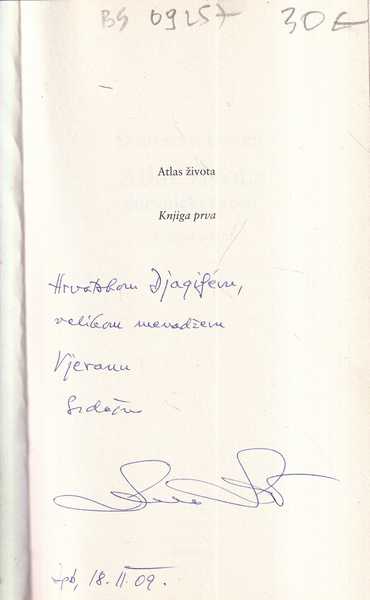 BS 09257 30€
Atlas života
Knjiga prva
Hrvatskom Djagiljevu,
velikom menadžeru
Vjeranu
Srdačno
Zgb, 18. II. 09.